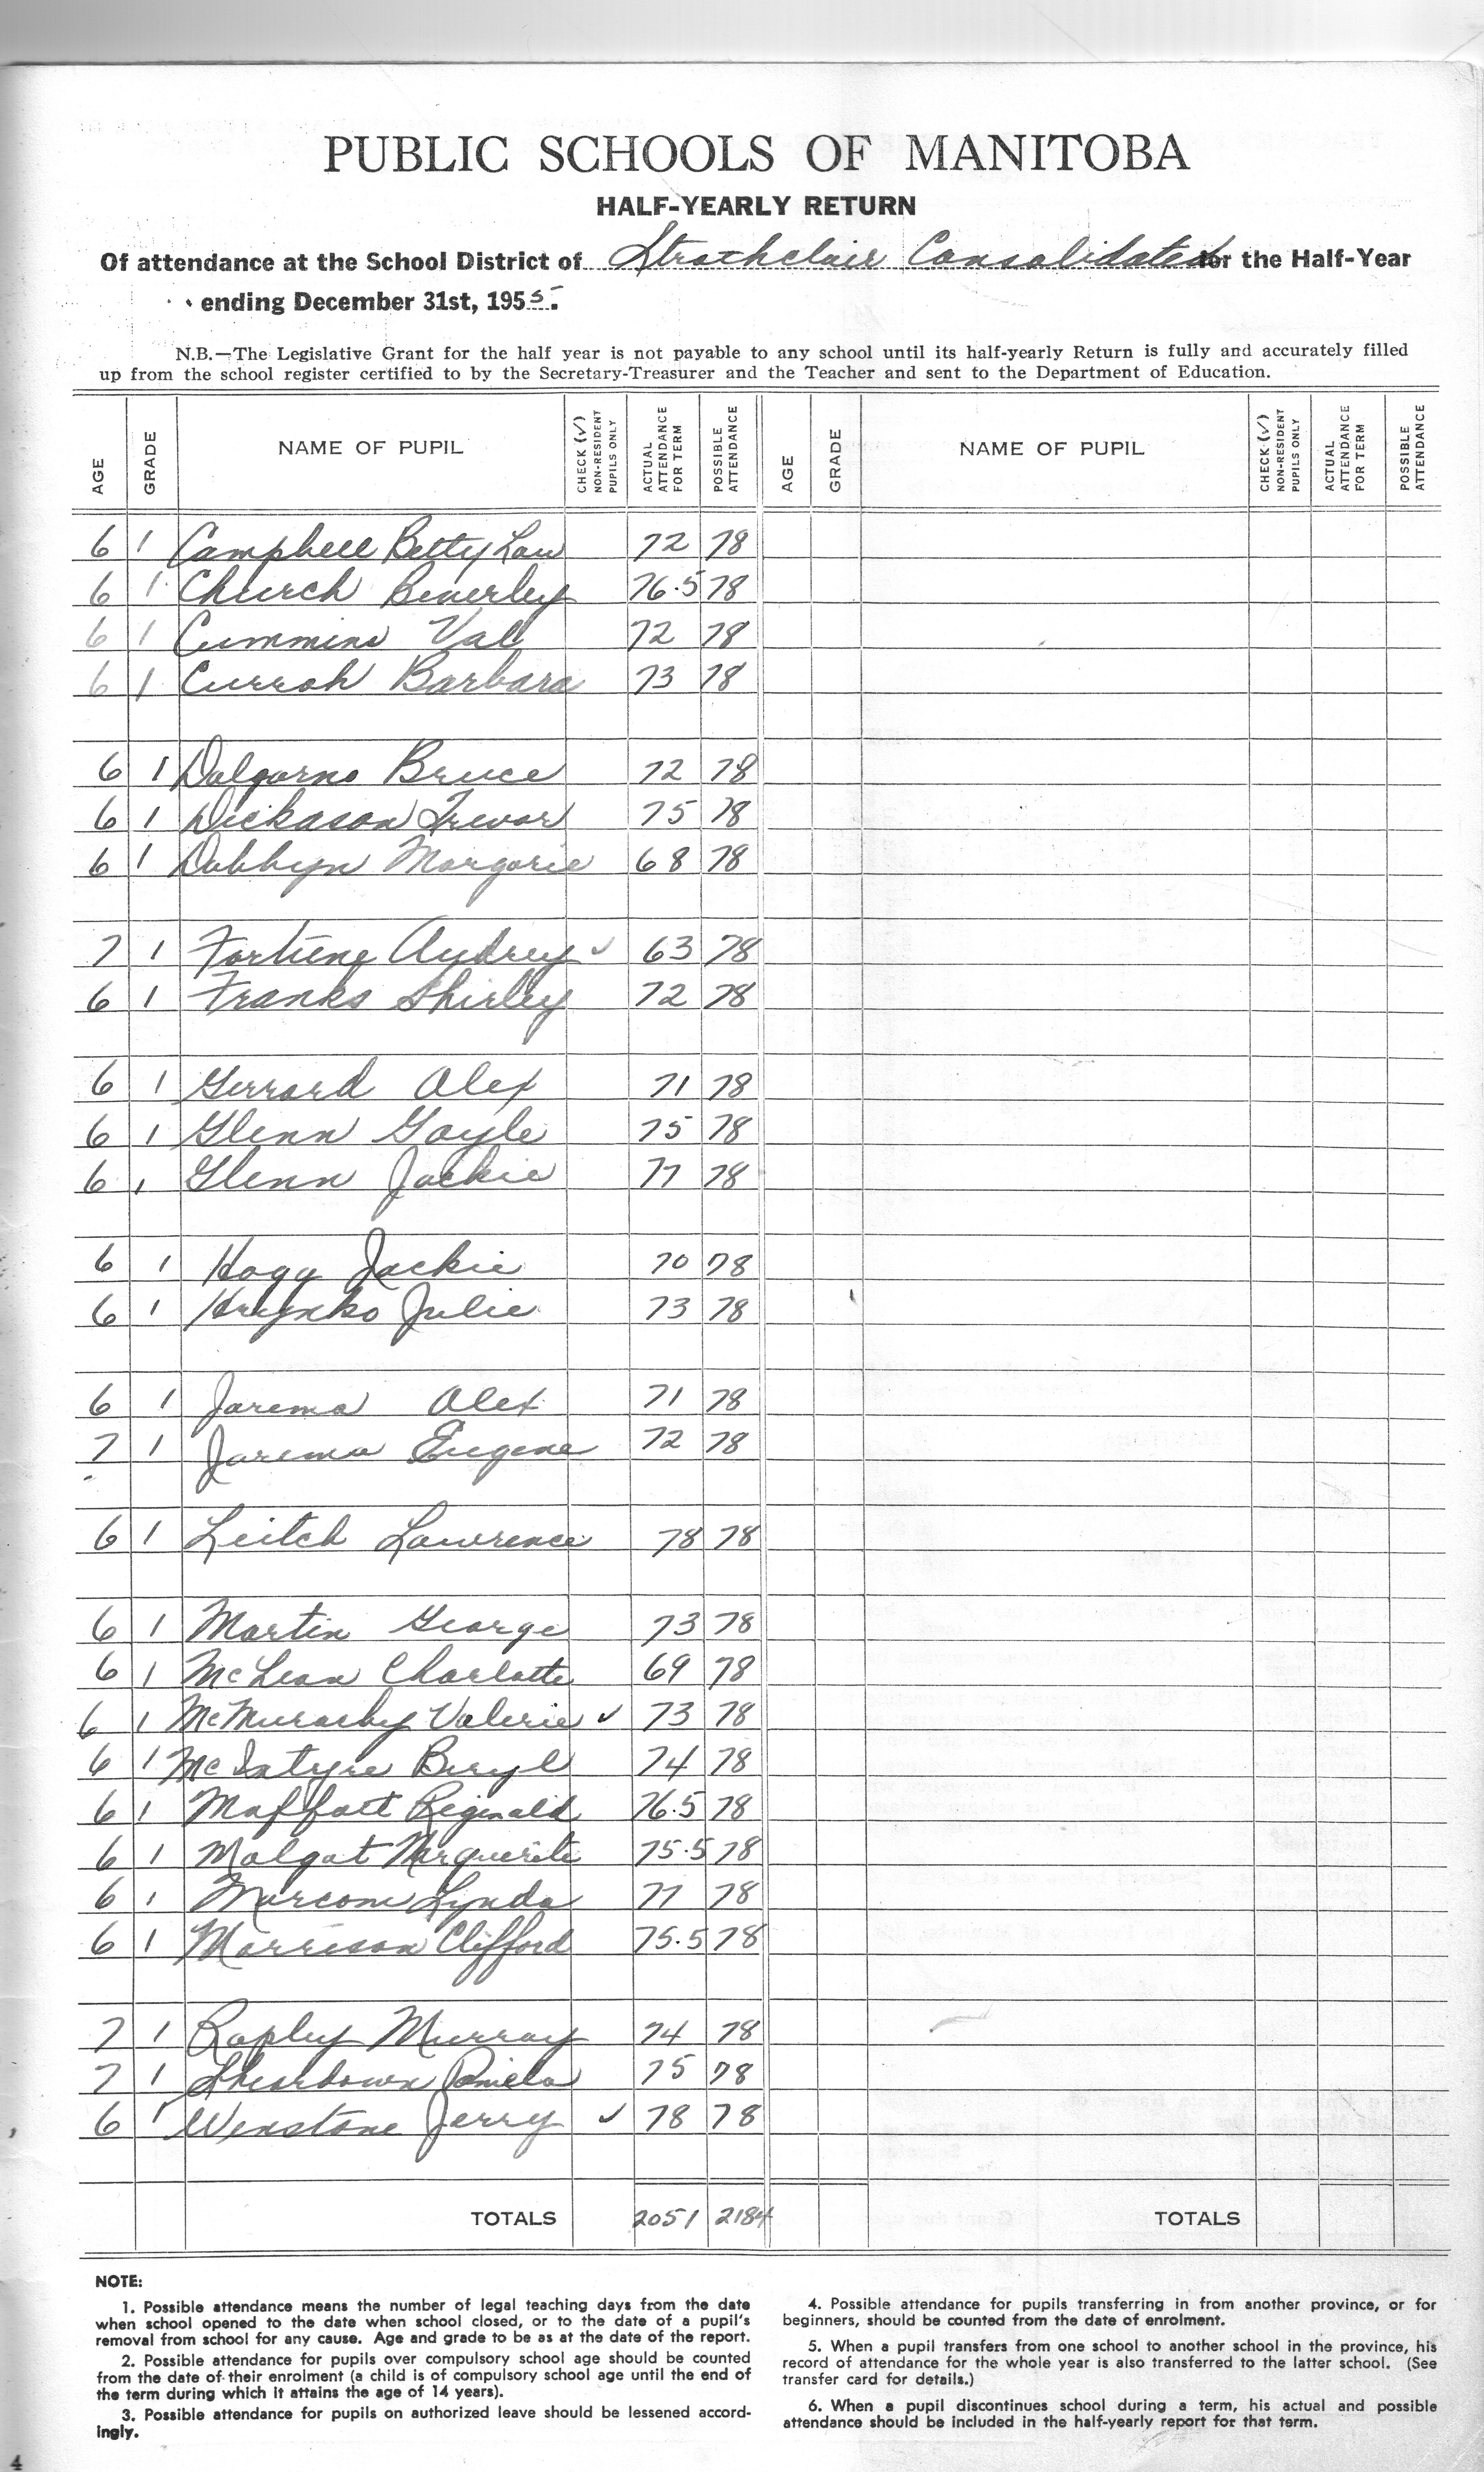 PUBLIC SCHOOLS OF MANITOBA
HALF-YEARLY RETURN
Of attendance at the School District of Strathclair Consolidated for the Half-Year
ending December 31st, 1955.
N.B.—The Legislative Grant for the half year is not payable to any school until its half-yearly Return is fully and accurately filled
up from the school register certified to by the Secretary-Treasurer and the Teacher and sent to the Department of Education.
AGE GRADE NAME OF PUPIL CHECK (✓) NON-RESIDENT PUPILS ONLY ACTUAL ATTENDANCE FOR TERM POSSIBLE ATTENDANCE AGE GRADE NAME OF PUPIL CHECK (✓) NON-RESIDENT PUPILS ONLY ACTUAL ATTENDANCE FOR TERM POSSIBLE ATTENDANCE
6 1 Campbell Betty Lou 72 78
6 1 Church Beverley 76.5 78
6 1 Cummins Val 72 78
6 1 Currah Barbara 73 78
6 1 Dalgarno Bruce 72 78
6 1 Dickason Trevor 75 78
6 1 Dobbyn Margorie 68 78
7 1 Fortune Audrey ✓ 63 78
6 1 Franks Shirley 72 78
6 1 Gerrard Alex 71 78
6 1 Glenn Gayle 75 78
6 1 Glenn Jackie 77 78
6 1 Hogg Jackie 70 78
6 1 Hrynko Julie 73 78
6 1 Jarema Alex 71 78
7 1 Jarema Eugene 72 78
6 1 Leitch Lawrence 78 78
6 1 Martin George 73 78
6 1 McLean Charlotte 69 78
6 1 McMurachy Valerie ✓ 73 78
6 1 McIntyre Beryl 74 78
6 1 Maffatt Reginald 76.5 78
6 1 Malgat Marguerite 75.5 78
6 1 Marcom Lynda 77 78
6 1 Morrison Clifford 75.5 78
7 1 Rapley Murray 74 78
7 1 Shearbown Pamela 75 78
6 1 Winstone Jerry ✓ 78 78
TOTALS 2051 2184 TOTALS
NOTE:
1. Possible attendance means the number of legal teaching days from the date
when school opened to the date when school closed, or to the date of a pupil's
removal from school for any cause. Age and grade to be as at the date of the report.
2. Possible attendance for pupils over compulsory school age should be counted
from the date of their enrolment (a child is of compulsory school age until the end of
the term during which it attains the age of 14 years).
3. Possible attendance for pupils on authorized leave should be lessened accord-
ingly.
4. Possible attendance for pupils transferring in from another province, or for
beginners, should be counted from the date of enrolment.
5. When a pupil transfers from one school to another school in the province, his
record of attendance for the whole year is also transferred to the latter school. (See
transfer card for details.)
6. When a pupil discontinues school during a term, his actual and possible
attendance should be included in the half-yearly report for that term.
4